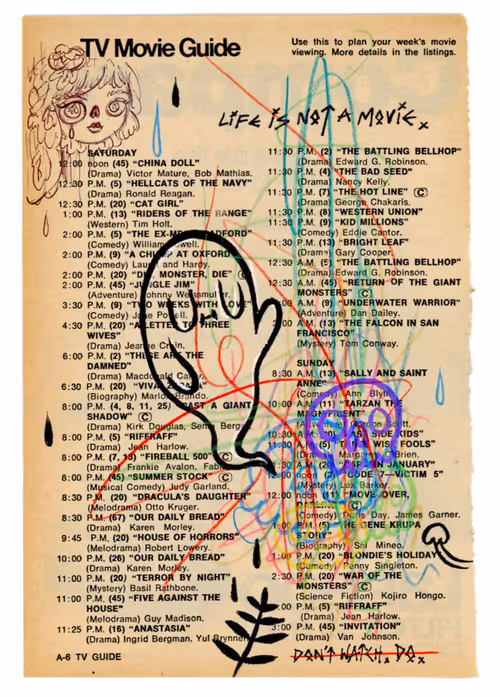 TV Movie Guide
Use this to plan your week's movie
viewing. More details in the listings.
LIFE iS NOT A MOVIE.
SATURDAY
12:00 noon (45) "CHINA DOLL"
(Drama) Victor Mature, Bob Mathias.
12:30 P.M. (5) "HELLCATS OF THE NAVY"
(Drama) Ronald Reagan.
12:30 P.M. (20) "CAT GIRL"
1:00 P.M. (13) "RIDERS OF THE RANGE"
(Western) Tim Holt.
2:00 P.M. (5) "THE
(Comedy) William
2:00 P.M. (9) "A CHUMP AT OXFORD"
(Comedy) Laurel and Hardy.
2:00 P.M. (20) "DIE, MONSTER, DIE" Ⓒ
2:00 P.M. (45) "JUNGLE JIM"
(Adventure) Johnny Weissmuller.
3:30 P.M. (9) "TWO WEEKS WITH LOVE"
(Comedy) Jane Powell.
4:30 P.M. (20) "A LETTER TO THREE
WIVES"
(Drama) Jeanne Crain.
6:00 P.M. (2) "THESE ARE THE
DAMNED"
(Drama) Macdonald Carey.
6:30 P.M. (20) "VIVA ZAPATA"
(Biography) Marlon Brando.
8:00 P.M. (4, 8, 11, 25) "CAST A GIANT
SHADOW" Ⓒ
(Drama) Kirk Douglas, Senta Berger.
8:00 P.M. (5) "RIFFRAFF"
(Drama) Jean Harlow.
8:00 P.M. (7, 13) "FIREBALL 500" Ⓒ
(Drama) Frankie Avalon, Fabian.
8:00 P.M. (45) "SUMMER STOCK" Ⓒ
(Musical Comedy) Judy Garland.
8:30 P.M. (20) "DRACULA'S DAUGHTER"
(Melodrama) Otto Kruger.
8:30 P.M. (67) "OUR DAILY BREAD"
(Drama) Karen Morley.
9:45 P.M. (20) "HOUSE OF HORRORS"
(Melodrama) Robert Lowery.
10:00 P.M. (26) "OUR DAILY BREAD"
(Drama) Karen Morley.
11:00 P.M. (20) "TERROR BY NIGHT"
(Mystery) Basil Rathbone.
11:00 P.M. (45) "FIVE AGAINST THE
HOUSE"
(Melodrama) Guy Madison.
11:25 P.M. (16) "ANASTASIA"
(Drama) Ingrid Bergman, Yul Brynner.
A-6 TV GUIDE
11:30 P.M. (2) "THE BATTLING BELLHOP"
(Drama) Edward G. Robinson.
11:30 P.M. (4) "THE BAD SEED"
(Drama) Nancy Kelly.
11:30 P.M. (7) "THE HOT LINE" Ⓒ
(Drama) George Chakaris.
11:30 P.M. (8) "WESTERN UNION"
11:30 P.M. (9) "KID MILLIONS"
(Comedy) Eddie Cantor.
11:30 P.M. (13) "BRIGHT LEAF"
(Drama) Gary Cooper.
12:30 A.M. (5) "THE BATTLING BELLHOP"
(Drama) Edward G. Robinson.
12:30 A.M. (45) "RETURN OF THE GIANT
MONSTERS" Ⓒ
A.M. (9) "UNDERWATER WARRIOR"
(Adventure) Dan Dailey.
A.M. (13) "THE FALCON IN SAN
FRANCISCO"
(Mystery) Tom Conway.
SUNDAY
8:30 A.M. (13) "SALLY AND SAINT
ANNE"
(Comedy) Ann Blyth.
10:00 A.M. (11) "TARZAN THE
MAGNIFICENT"
(Adventure) Gordon Scott.
10:30 A.M. (20) KIDS"
(5) COOLS"
(Drama) Margaret O'Brien.
JANUARY"
noon "CODE 7—VICTIM 5"
(Mystery) Lex Barker.
12:00 noon "MOVE OVER,
Ⓒ
(Comedy) Doris Day, James Garner.
1:00 "THE GENE KRUPA
STORY"
(Biography) Sal Mineo.
1:00 P.M. (20) "BLONDIE'S HOLIDAY"
(Comedy) Penny Singleton.
2:30 P.M. (20) "WAR OF THE
MONSTERS" Ⓒ
(Science Fiction) Kojiro Hongo.
P.M. (5) "RIFFRAFF"
(Drama) Jean Harlow.
3:00 P.M. (45) "INVITATION"
(Drama) Van Johnson.
DON'T WATCH. DO.